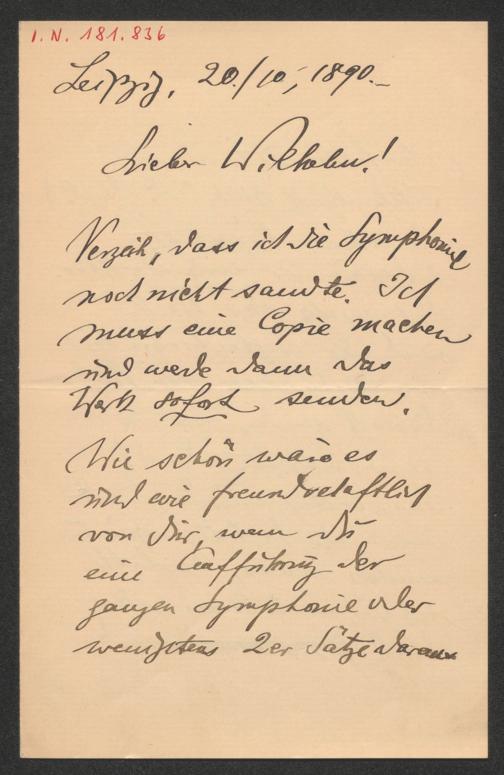 I.N. 181.836
Leipzig, 20./10., 1890.–
Lieber Wilhelm!
Verzeih, dass ich die Symphonie
noch nicht sandte. Ich
muss eine Copie machen
und werde dann das
Werk sofort senden.
Wie schön wäre es
und wie freundschaftlich
von Dir, wenn Du
eine Aufführung der
ganzen Symphonie oder
wenigstens 2er Sätze daraus